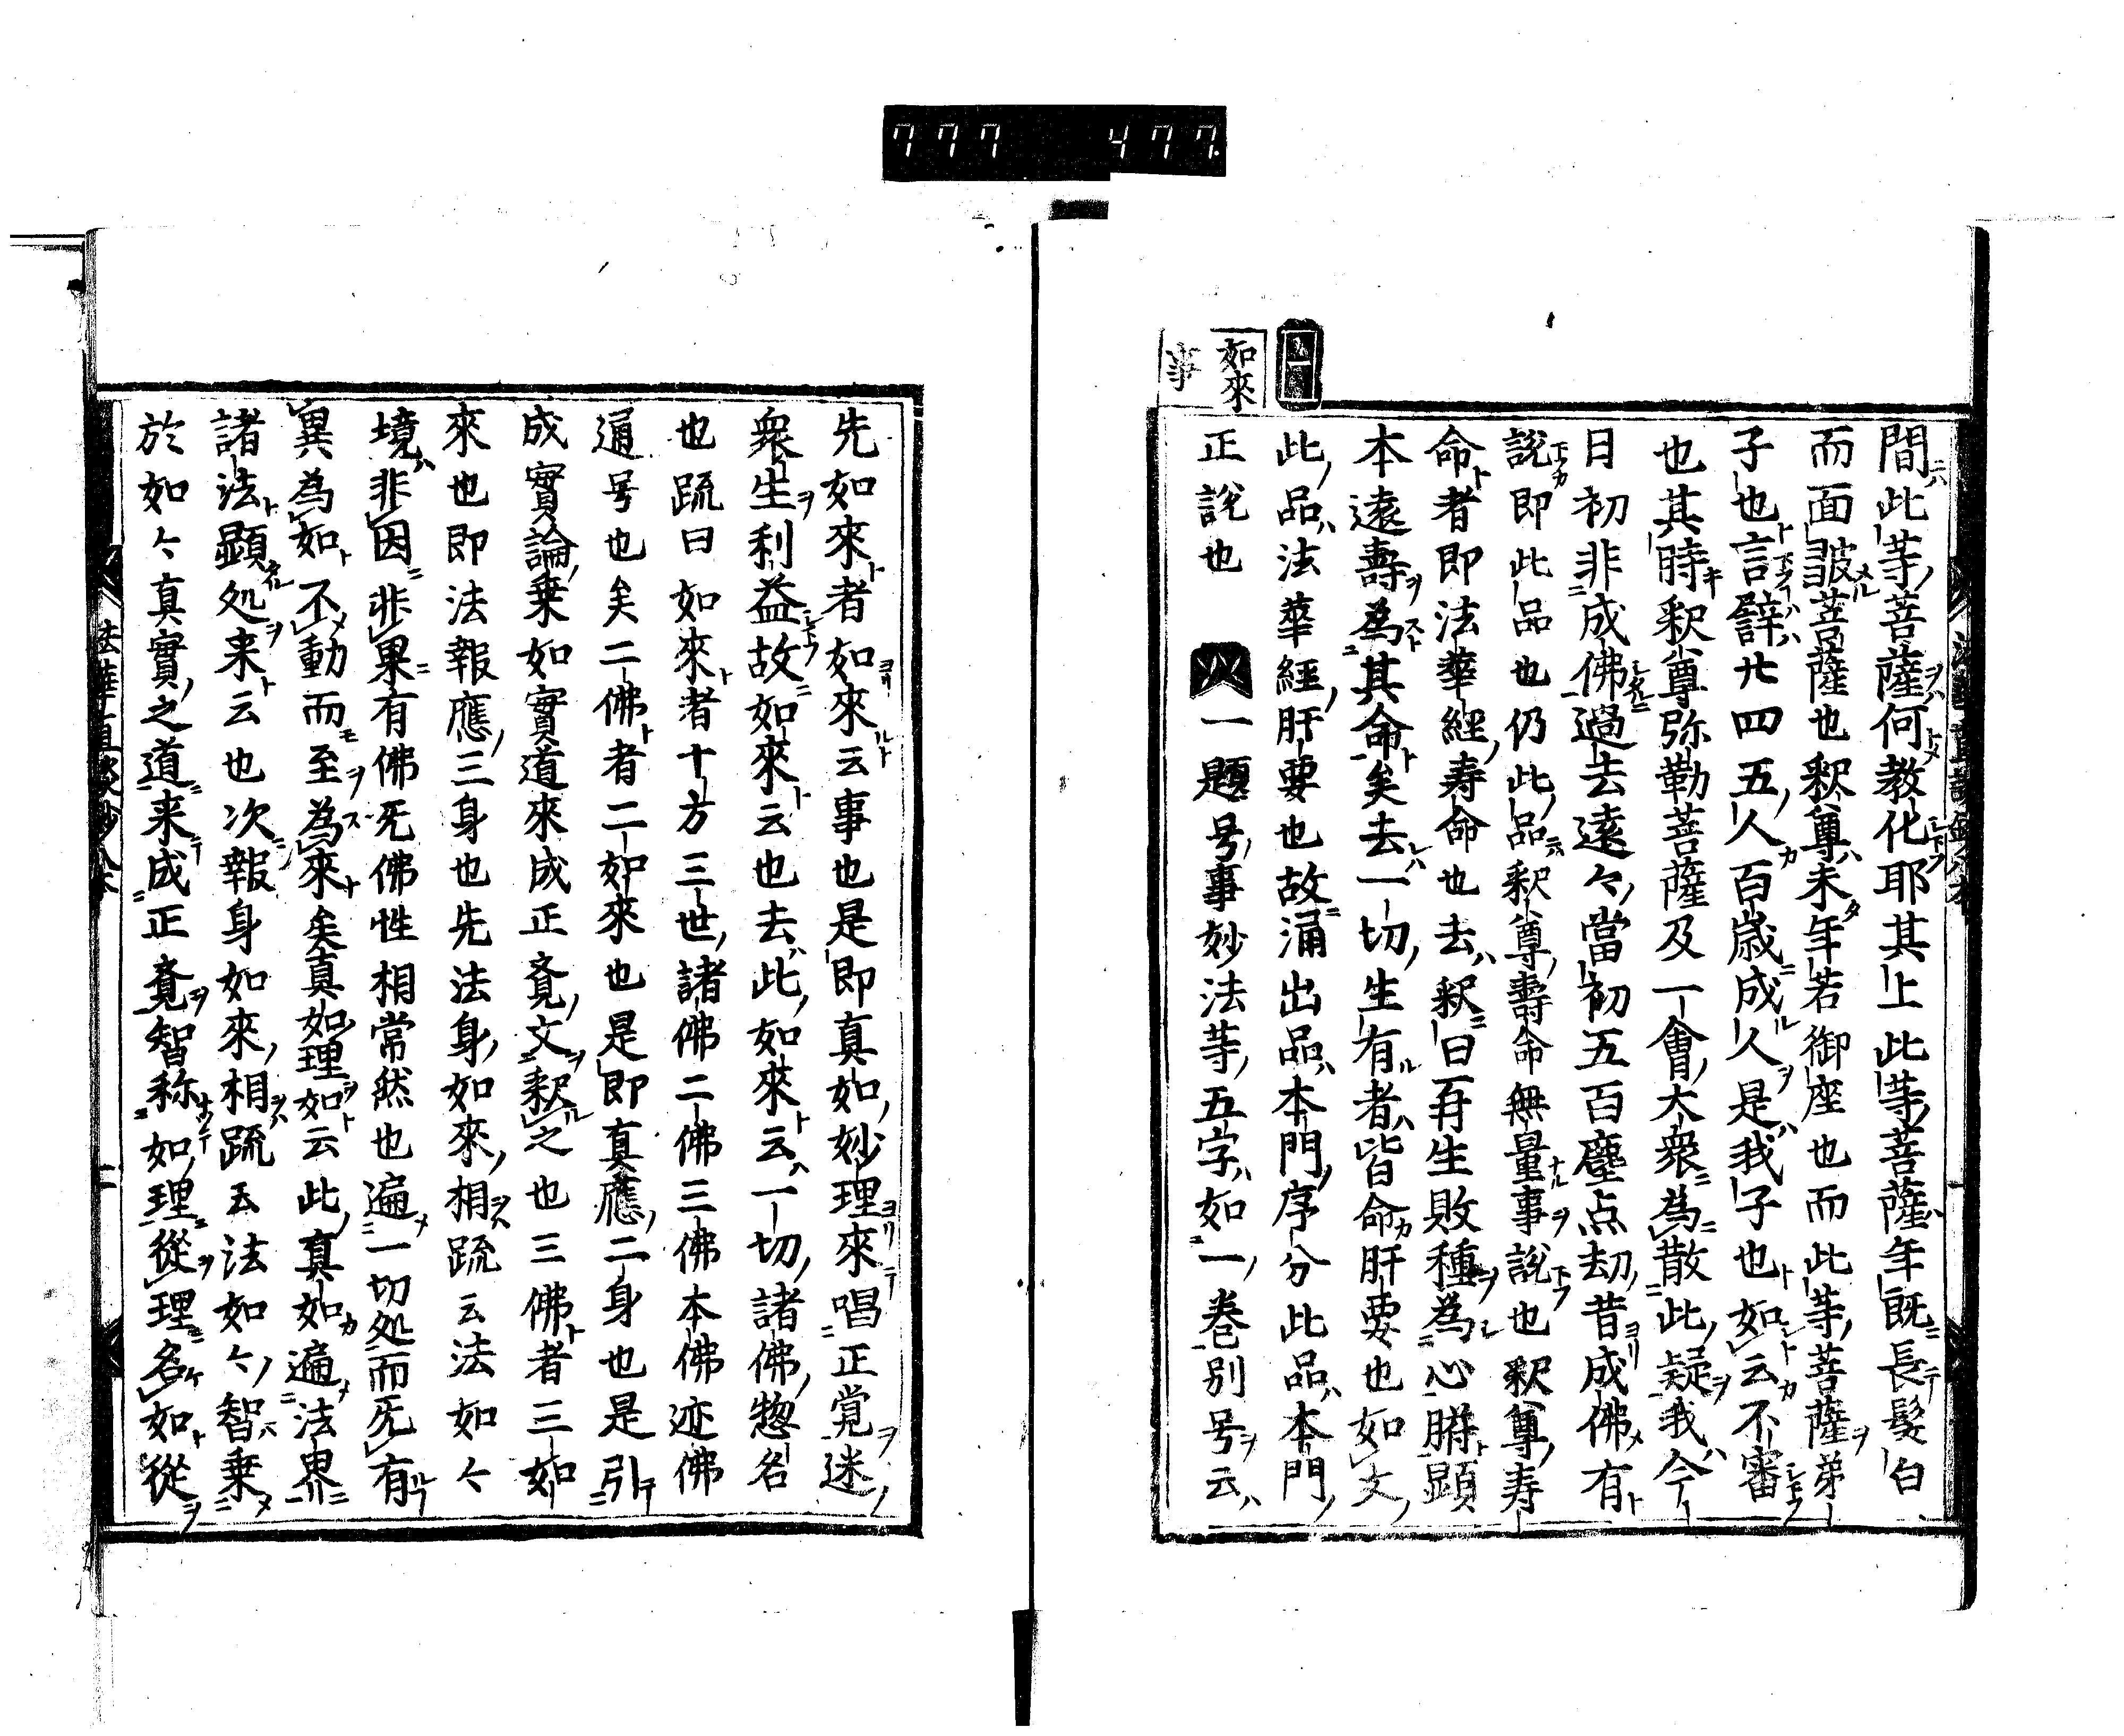 777 477
間此等菩薩何教化耶其上此等菩薩年既長髮白
而面皺菩薩也釈尊未年若御座也而此等菩薩弟
子也言譬廿四五人百歳成人是我子也如云不審
也其時釈尊弥勒菩薩及一會大衆為散此疑我今
日初非成佛過去遠々當初五百塵点劫昔成佛有
説即此品也仍此品釈尊壽命無量事説也釈尊寿
命者即法華経寿命也去釈曰再生敗種為心腑顕
本遠壽為其命矣去一切生有者皆命肝要也如文
此品法華経肝要也故涌出品本門序分此品本門
正説也　一題号事妙法等五字如一巻別号云
如來
事
先如來者如來云事也是即真如妙理來唱正覚迷
衆生利益故如來云也去此如來云一切諸佛惣名
也疏曰如來者十方三世諸佛二佛三佛本佛迹佛
通号也矣二佛者二如來也是即真應二身也是引
成實論乗如實道來成正覚文釈之也三佛者三如
來也即法報應三身也先法身如來相疏云法如々
境非因非果有佛无佛性相常然也遍一切処而无有
異為如不動而至為來矣真如理如云此真如遍法界
諸法顕処来云也次報身如來相疏云法如々智乗
於如々真實之道来成正覚智称如理從理名如從